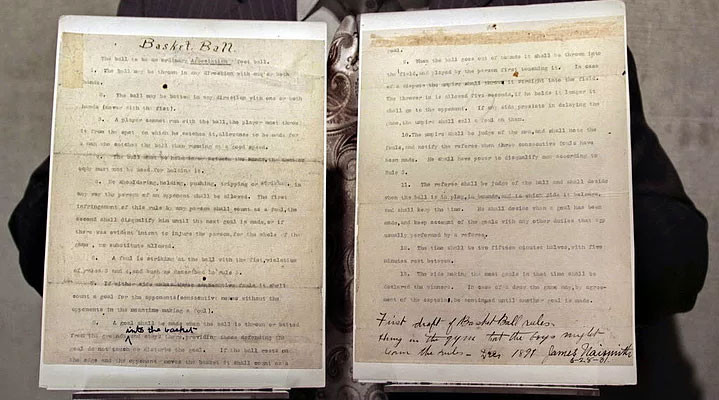 Basket Ball.
The ball to be an ordinary Association foot ball.
1. The ball may be thrown in any direction with one or both
hands.
2. The ball may be batted in any direction with one or both
hands (never with the fist).
3. A player cannot run with the ball, the player must throw
it from the spot on which he catches it, allowance to be made for
a man who catches the ball when running at a good speed.
4. The ball must be held in or between the hands, the arms or
body must not be used for holding it.
5. No shouldering, holding, pushing, tripping or striking, in
any way the person of an opponent shall be allowed. The first
infringement of this rule by any person shall count as a foul, the
second shall disqualify him until the next goal is made, or if
there was evident intent to injure the person, for the whole of the
game, no substitute allowed.
6. A foul is striking at the ball with the fist, violation
of rules 3 and 4, and such as described in rule 5.
7. If either side makes three consecutive fouls it shall
count a goal for the opponents (consecutive means without the
opponents in the meantime making a foul).
8. A goal shall be made when the ball is thrown or batted
into the basket
from the grounds and stays there, providing those defending the
goal do not touch or disturb the goal. If the ball rests on
the edge and the opponent moves the basket it shall count as a
goal.
9. When the ball goes out of bounds it shall be thrown into
the field, and played by the person first touching it. In case
of a dispute the umpire shall throw it straight into the field.
The thrower in is allowed five seconds, if he holds it longer it
shall go to the opponent. If any side presists in delaying the
game, the umpire shall call a foul on them.
10. The umpire shall be judge of the men, and shall note the
fouls, and notify the referee when three consecutive fouls have
been made. He shall have power to disqualify men according to
Rule 5.
11. The referee shall be judge of the ball and shall decide
when the ball is in play, in bounds, and to which side it belongs,
and shall keep the time. He shall decide when a goal has been
made, and keep account of the goals with any other duties that are
usually performed by a referee.
12. The time shall be two fifteen minutes halves, with five
minutes rest between.
13. The side making the most goals in that time shall be
declared the winners. In case of a draw the game may, by agree-
ment of the captains, be continued until another goal is made.
First draft of Basket Ball rules.
Hung in the gym that the boys might
learn the rules - Dec 1891 James Naismith
6-28-31